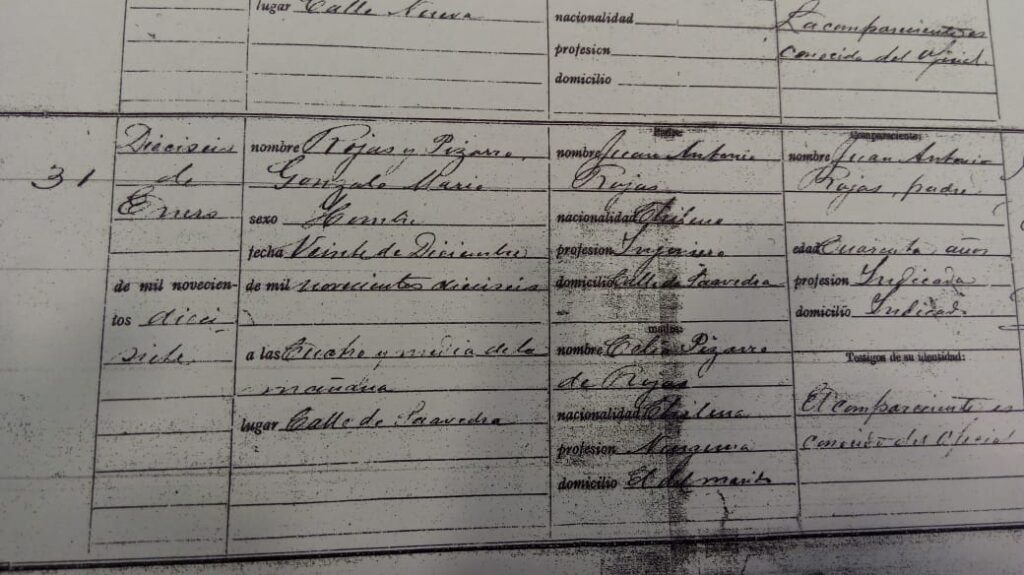 lugar Calle Nueva
nacionalidad
profesion
domicilio
La compareciente es
conocida del Oficial.
31
Dieciseis
de
Enero
de mil novecien-
tos dieci
siete
nombre Rojas y Pizarro,
Gonzalo Mario
sexo Hombre
fecha Veinte de Diciembre
de mil novecientos dieciseis
a las Ocho y media de la
mañana
lugar Calle de Saavedra
Padre:
nombre Juan Antonio
Rojas
nacionalidad Chileno
profesion Injeniero
domicilio Calle de Saavedra
madre:
nombre Celia Pizarro
de Rojas
nacionalidad Chilena
profesion Ninguna
domicilio El del marido
Compareciente:
nombre Juan Antonio
Rojas, padre
edad Cuarenta años
profesion Indicada
domicilio Indicado
Testigos de su identidad:
El compareciente es
conocido del Oficial